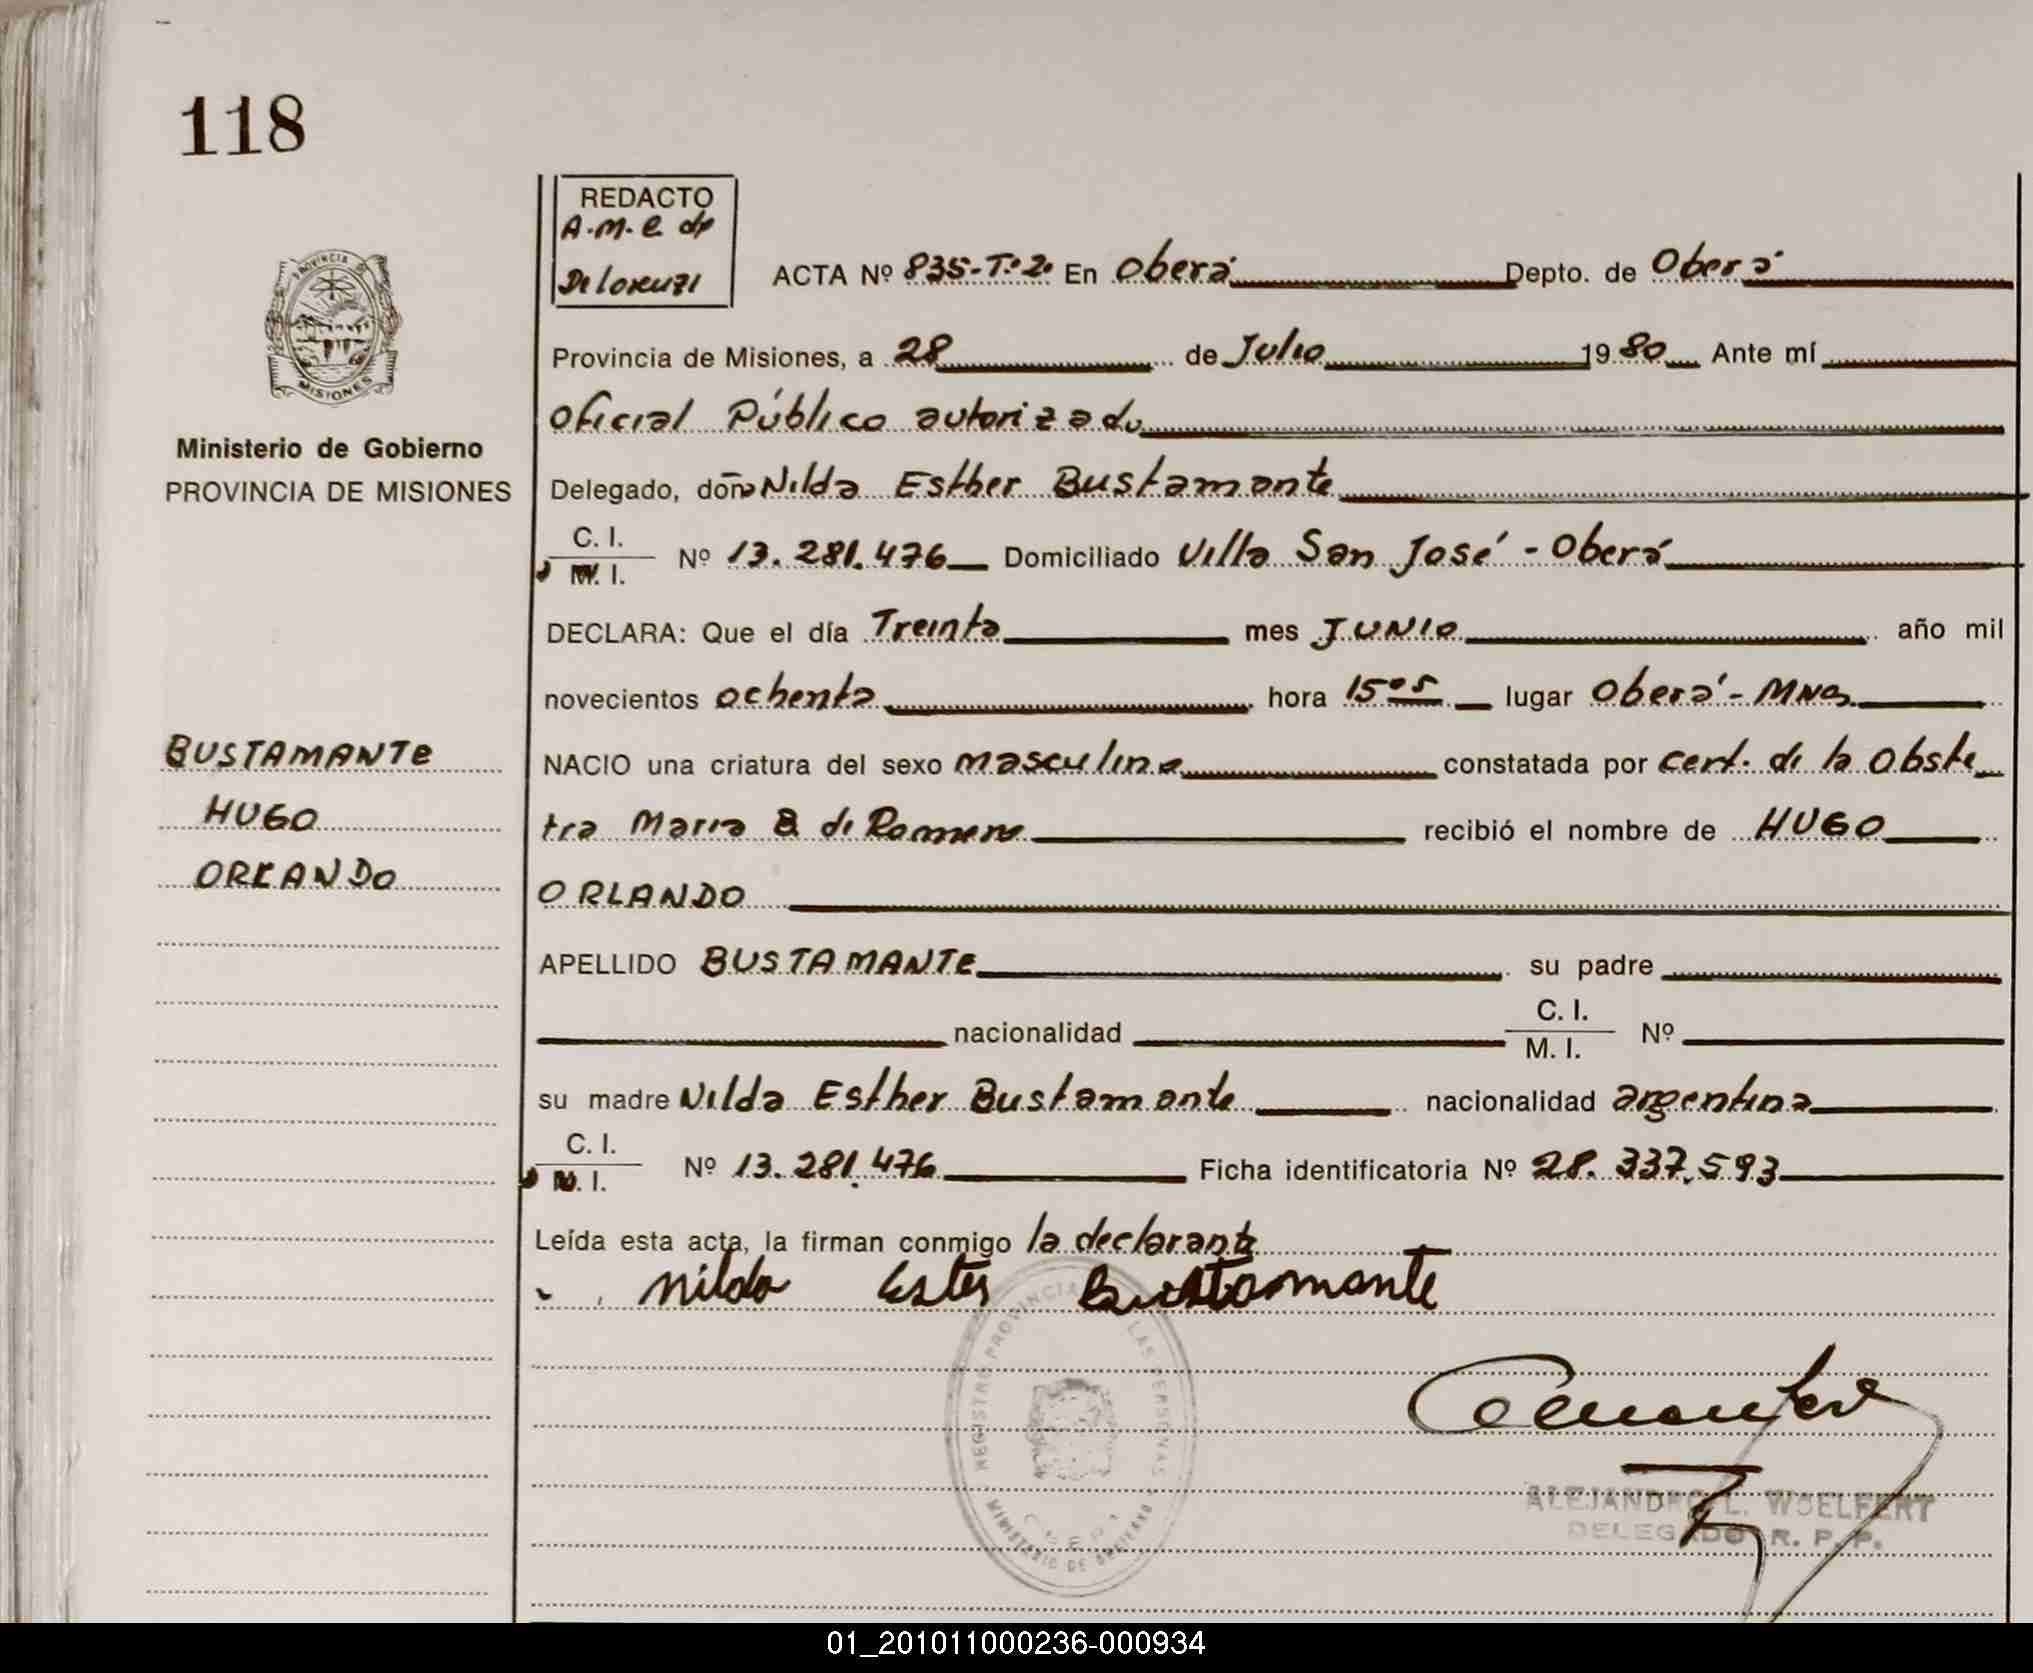 118
REDACTO
A.M.C. de
De Lorenzi
ACTA Nº 835-Tº2º En Oberá Depto. de Oberá
PROVINCIA
MISIONES
Provincia de Misiones, a 28 de Julio 1980 Ante mí
Oficial Público autorizado
Ministerio de Gobierno
PROVINCIA DE MISIONES
Delegado, doña Nilda Esther Bustamante
C. I.
M. I. Nº 13.281.476 Domiciliado Villa San José - Oberá
DECLARA: Que el día Treinta mes JUNIO año mil
novecientos ochenta hora 15⁰⁵ lugar Oberá - Mnes
BUSTAMANTE
HUGO
ORLANDO
NACIO una criatura del sexo masculino constatada por cert. de la Obste
tra Maria B. de Romero recibió el nombre de HUGO
ORLANDO
APELLIDO BUSTAMANTE su padre
nacionalidad C. I.
M. I. Nº
su madre Nilda Esther Bustamante nacionalidad argentina
C. I.
M. I. Nº 13.281.476 Ficha identificatoria Nº 28.337.593
Leída esta acta, la firman conmigo la declarante
Nilda Ester Bustamante
REGISTRO PROVINCIAL DE LAS PERSONAS
MINISTERIO DE GOBIERNO
OBERA
ALEJANDRO L. WOELFERT
DELEGADO R. P. P.
01_201011000236-000934